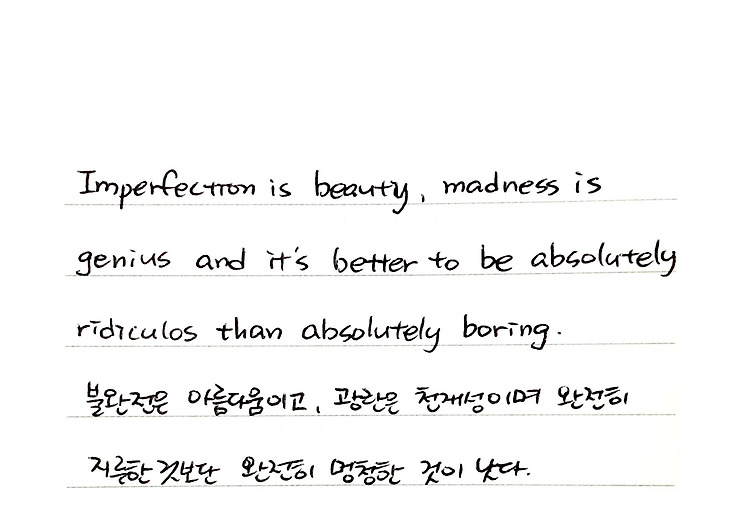 Imperfection is beauty, madness is
genius and it's better to be absolutely
ridiculos than absolutely boring.
불완전은 아름다움이고, 광란은 천재성이며 완전히
지름한것보단 완전히 멍청한 것이 낫다.